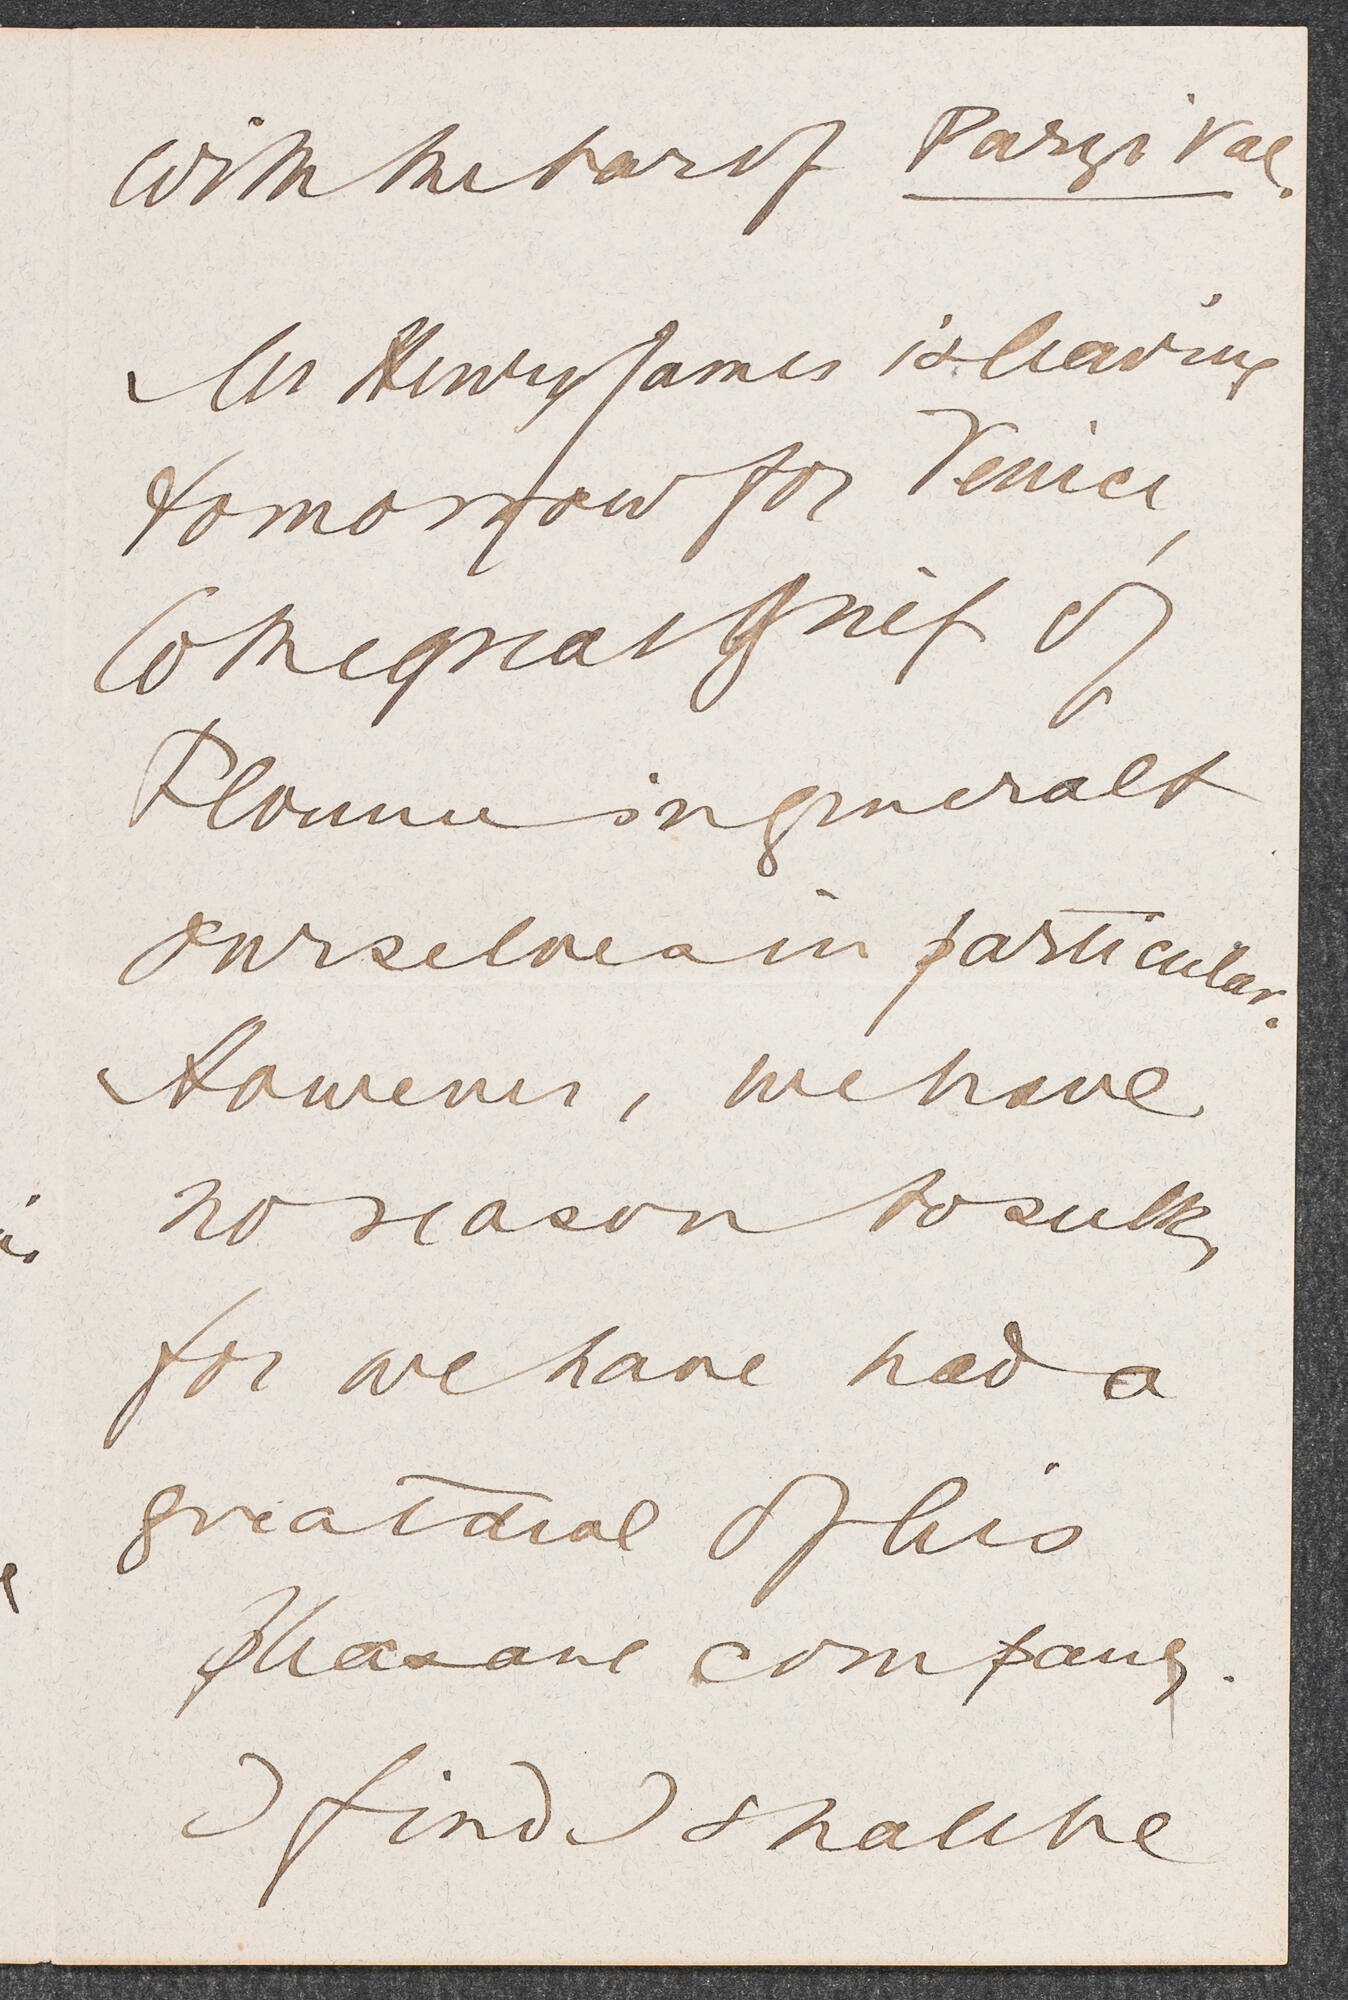 with the bar of Parzival.
Mr Henry James is leaving
tomorrow for Venice,
to the great grief of
Florence in general &
ourselves in particular.
However, we have
no reason to sulk,
for we have had a
great deal of his
pleasant company.
I find I shall be